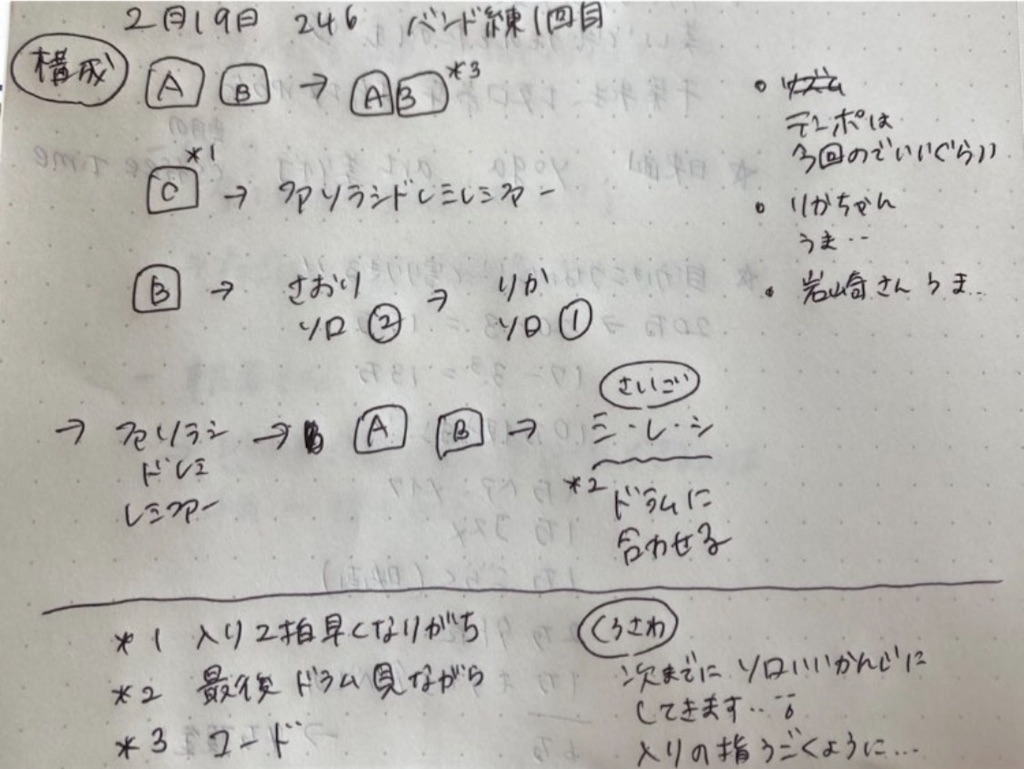 2月19日 246 バンド練1回目
構成 A B → AB *3
*1
C → ファソラシドレミレミファー
B → さおり → りか
ソロ② ソロ①
さいごっ
→ ファソラシ → A B → ミ・レ・シ
ドレミ
レミファー
*2 ドラムに
合わせる
・リズム
テンポは
今回のでいいぐらい
・りかちゃん
うま‥
・岩崎さん うま‥
*1 入り2拍早くなりがち
*2 最後 ドラム見ながら
*3 コード
くろさわ
次までに ソロいいかんじに
してきます‥
入りの指うごくように…